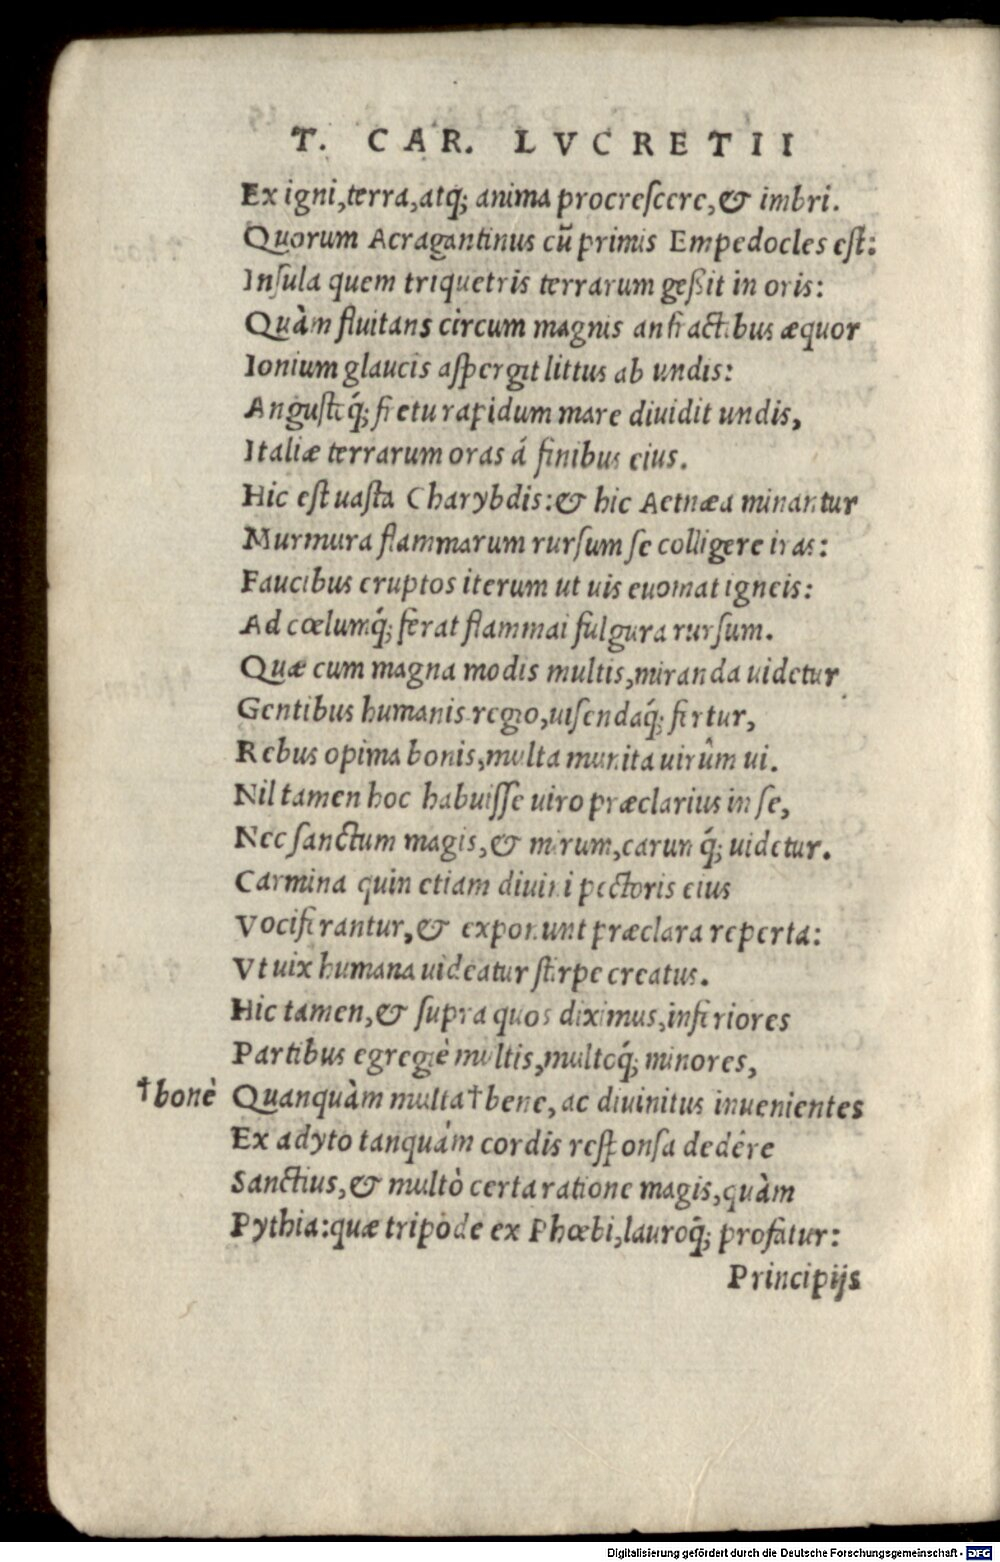 T. CAR. LVCRETII
Ex igni, terra, atq; anima procreſcere, & imbri.
Quorum Acragantinus cū primis Empedocles eſt:
Inſula quem triquetris terrarum geßit in oris:
Quàm fluitans circum magnis anfractibus æquor
Ionium glaucis aſpergit littus ab undis:
Anguſtq́; fretu rapidum mare diuidit undis,
Italiæ terrarum oras á finibus eius.
Hic eſt uaſta Charybdis: & hic Aetnæa minantur
Murmura flammarum rurſum ſe colligere iras:
Faucibus eruptos iterum ut uis euomat igneis:
Ad cœlumq́; ferat flammai fulgura rurſum.
Quæ cum magna modis multis, miranda uidetur
Gentibus humanis regio, uiſendaq́; fertur,
Rebus opima bonis, multa munita uirûm ui.
Nil tamen hoc habuiſſe uiro præclarius in ſe,
Nec ſanctum magis, & mirum, carumq́; uidetur.
Carmina quin etiam diuini pectoris eius
Vociferantur, & exponunt præclara reperta:
Vt uix humana uideatur ſtirpe creatus.
Hic tamen, & ſupra quos diximus, inferiores
Partibus egregiè multis, multoq́; minores,
†bonè Quanquàm multa †bene, ac diuinitus inuenientes
Ex adyto tanquám cordis reſponſa dedêre
Sanctius, & multò certa ratione magis, quàm
Pythia: quæ tripode ex Phœbi, lauroq́; profatur:
Principijs
Digitalisierung gefördert durch die Deutsche Forschungsgemeinschaft - DFG